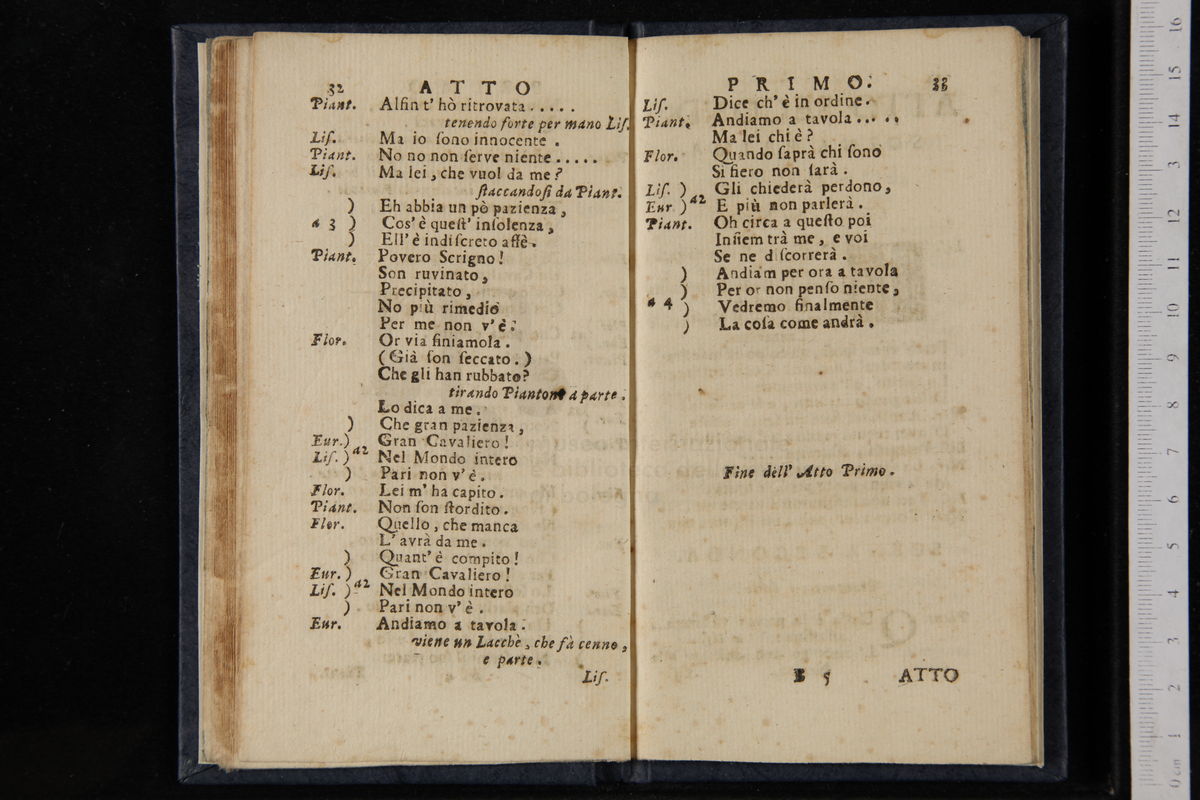 32 ATTO
Piant. Alfin t' hò ritrovata . . . . .
tenendo forte per mano Liſ.
Liſ. Ma io ſono innocente .
Piant. No no non ſerve niente . . . . .
Liſ. Ma lei , che vuol da me ?
ſtaccandoſi da Piant.
) Eh abbia un pò pazienza ,
a 3 ) Cos' è queſt' inſolenza ,
) Ell' è indiſcreto affè .
Piant. Povero Scrigno !
Son ruvinato ,
Precipitato ,
No più rimedio
Per me non v' è .
Flor. Or via finiamola .
( Già ſon ſeccato . )
Che gli han rubbato ?
tirando Piantone a parte .
Lo dica a me .
) Che gran pazienza ,
Eur. ) Gran Cavaliero !
Liſ. ) a2 Nel Mondo intero
) Pari non v' è .
Flor. Lei m' ha capito .
Piant. Non ſon ſtordito .
Flor. Quello , che manca
L' avrà da me .
) Quant' è compito !
Eur. ) Gran Cavaliero !
Liſ. ) a2 Nel Mondo intero
) Pari non v' è .
Eur. Andiamo a tavola .
viene un Lacchè , che fà cenno ,
e parte .
Liſ.
PRIMO. 33
Liſ. Dice ch' è in ordine .
Piant. Andiamo a tavola . . . . .
Ma lei chi è ?
Flor. Quando ſaprà chi ſono
Sì fiero non ſarà .
Liſ. ) Gli chiederà perdono ,
Eur ) a2 E più non parlerà .
Piant. Oh circa a queſto poi
Inſiem trà me , e voi
Se ne d ſcorrerà .
) Andiam per ora a tavola
) Per or non penſo niente ,
a 4 ) Vedremo finalmente
) La coſa come andrà .
Fine dell' Atto Primo .
B 5 ATTO
0 cm 1 2 3 4 5 6 7 8 9 10 11 12 13 14 15 16